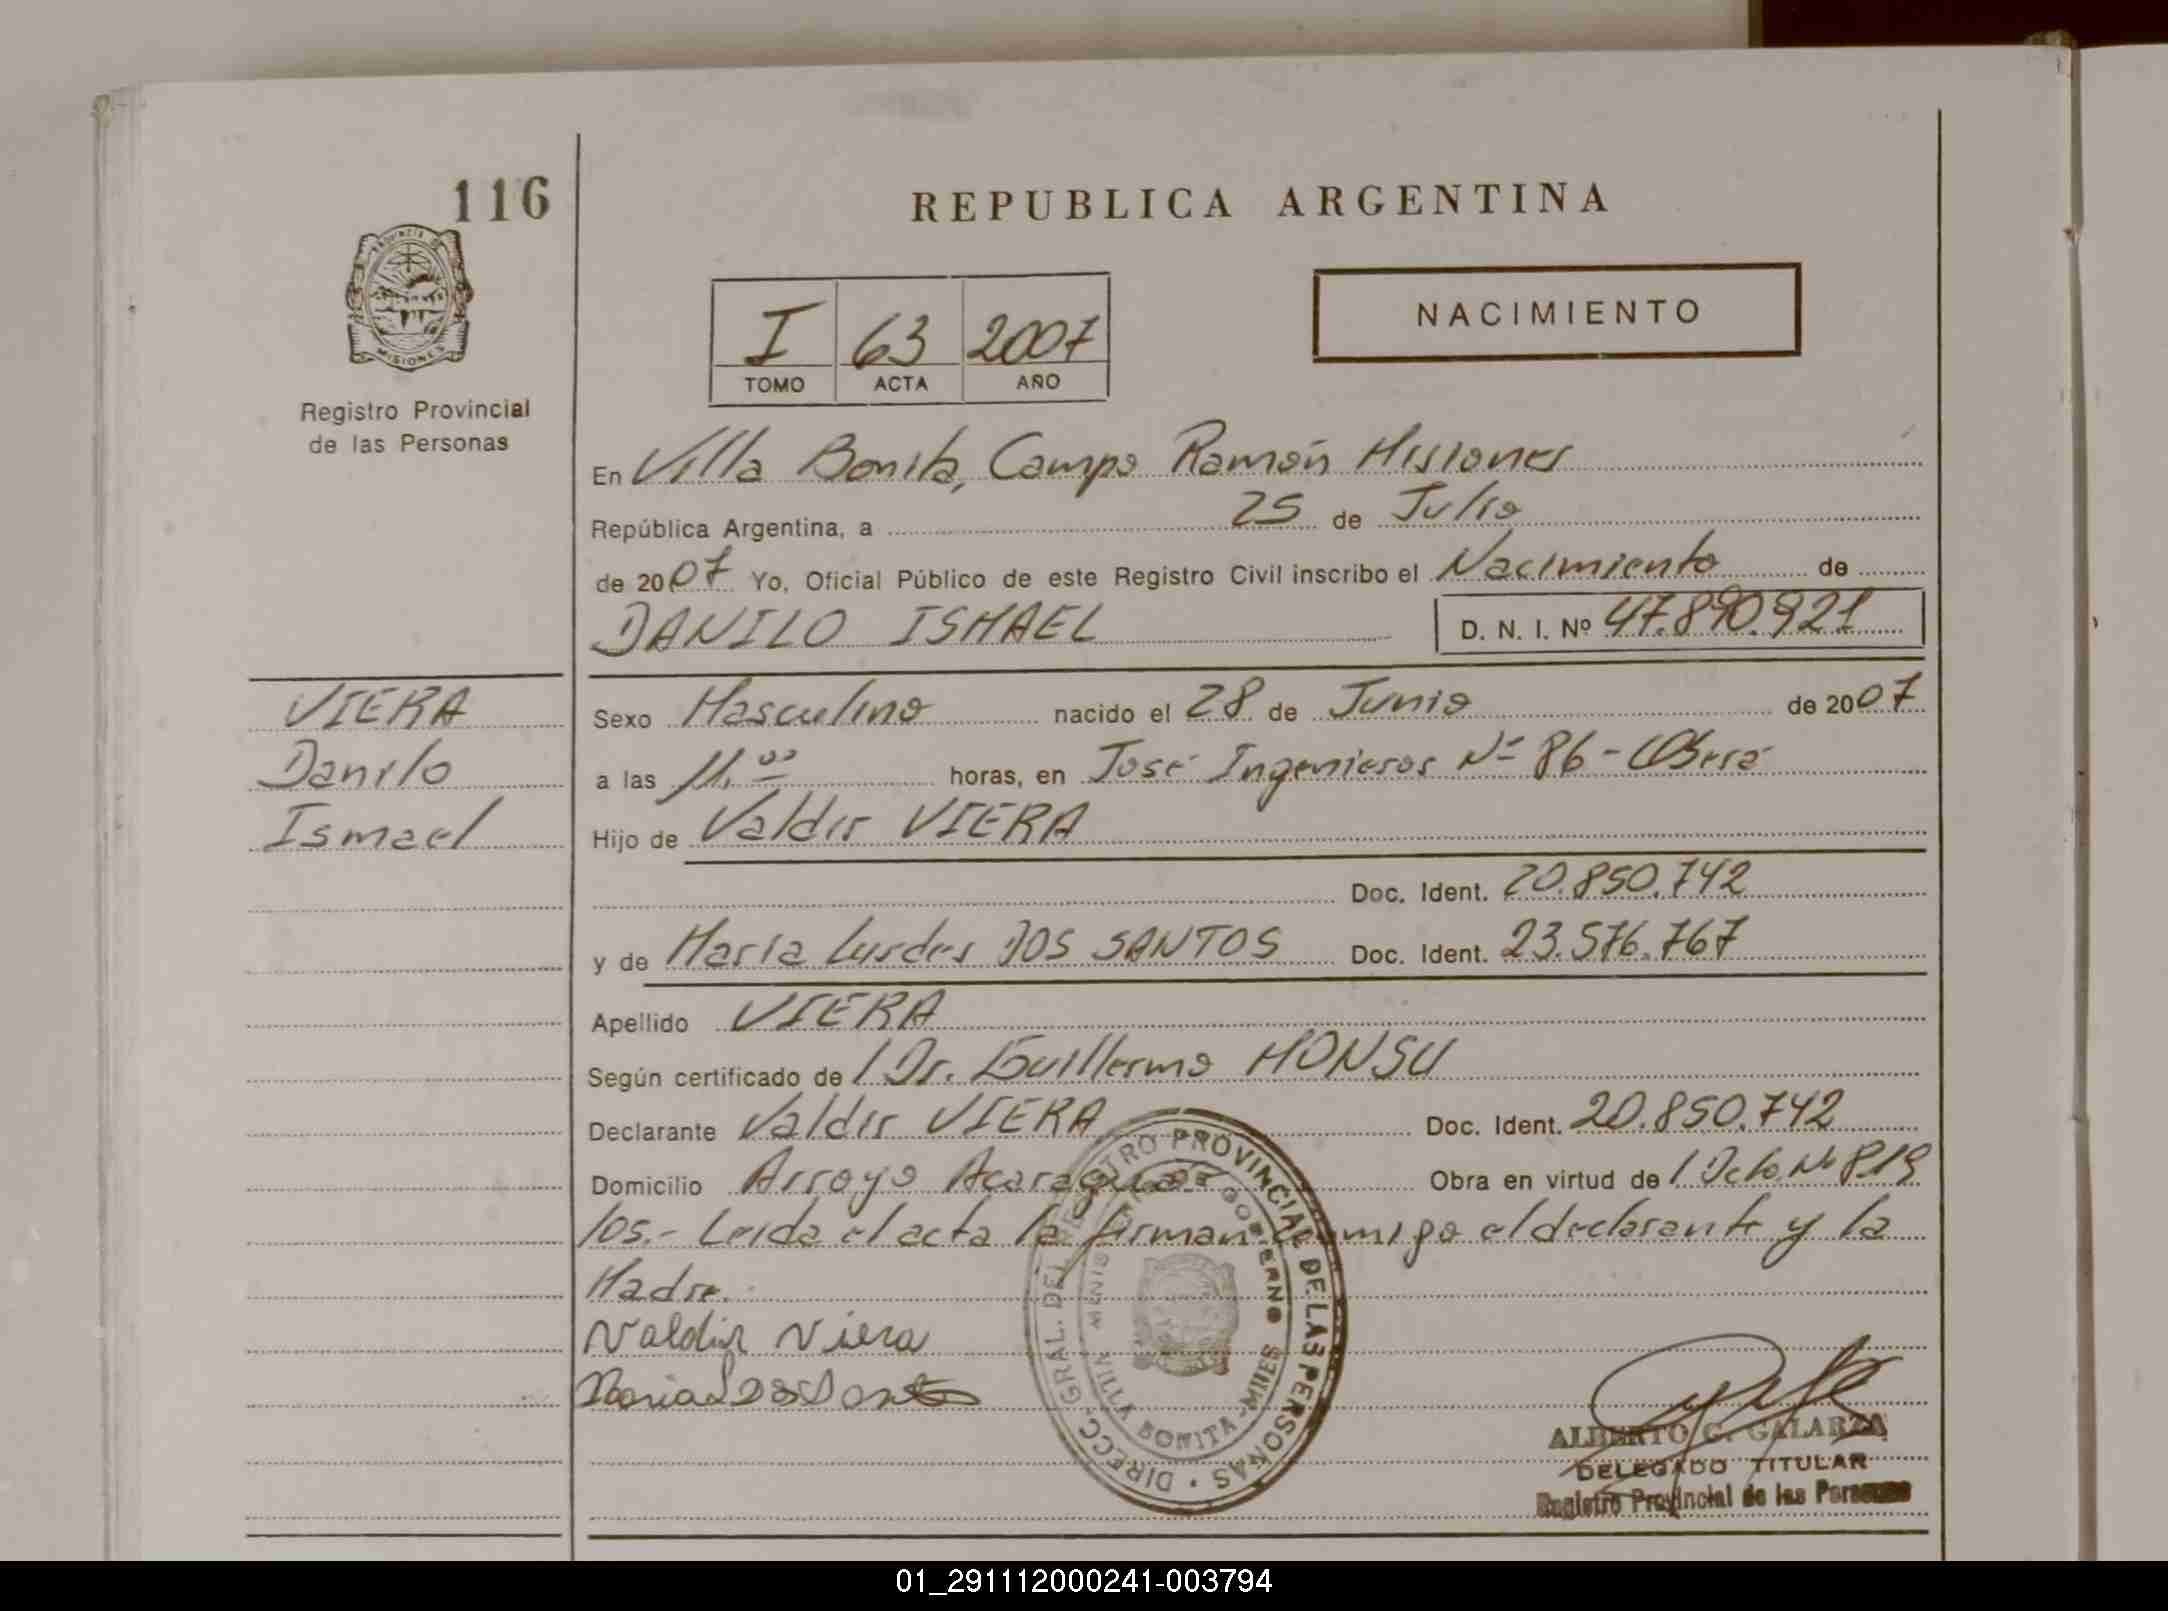 116
REPUBLICA ARGENTINA
PROVINCIA DE MISIONES
Registro Provincial
de las Personas
I 63 2007
TOMO ACTA AÑO
NACIMIENTO
En Villa Bonita, Campo Ramón Misiones
República Argentina, a 25 de Julio
de 2007 Yo, Oficial Público de este Registro Civil inscribo el Nacimiento de
DANILO ISMAEL D. N. I. Nº 47.890.921
VIERA
Danilo
Ismael
Sexo Masculino nacido el 28 de Junio de 2007
a las 11.00 horas, en José Ingenieros Nº 86 - Oberá
Hijo de Valdir VIERA
Doc. Ident. 20.850.742
y de María Lurdes DOS SANTOS Doc. Ident. 23.576.767
Apellido VIERA
Según certificado de / Dr. Guillermo MONSU
Declarante Valdir VIERA Doc. Ident. 20.850.742
Domicilio Arroyo Acaraguá Obra en virtud de / Dcto. Nº 819
/05.- Leida el acta la firman conmigo el declarante y la
Madre.
Valdir Viera
DIRECC. GRAL. DEL REGISTRO PROVINCIAL DE LAS PERSONAS
VILLA BONITA - MNES
ALBERTO C. GALARZA
DELEGADO TITULAR
Registro Provincial de las Personas
01_291112000241-003794